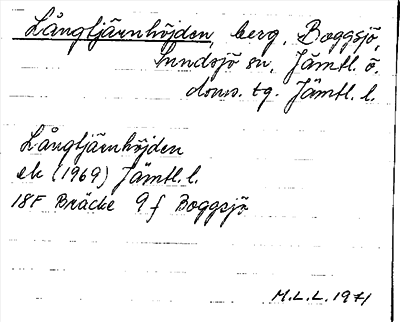 Långtjärnhöjden, berg, Boggsjö,
Sundsjö sn, Jämtl. ö.
doms. tg. Jämtl. l.
Långtjärnhöjden
ek (1969) Jämtl. l.
18F Bräcke 9 f Boggsjö
M.L.L. 1971